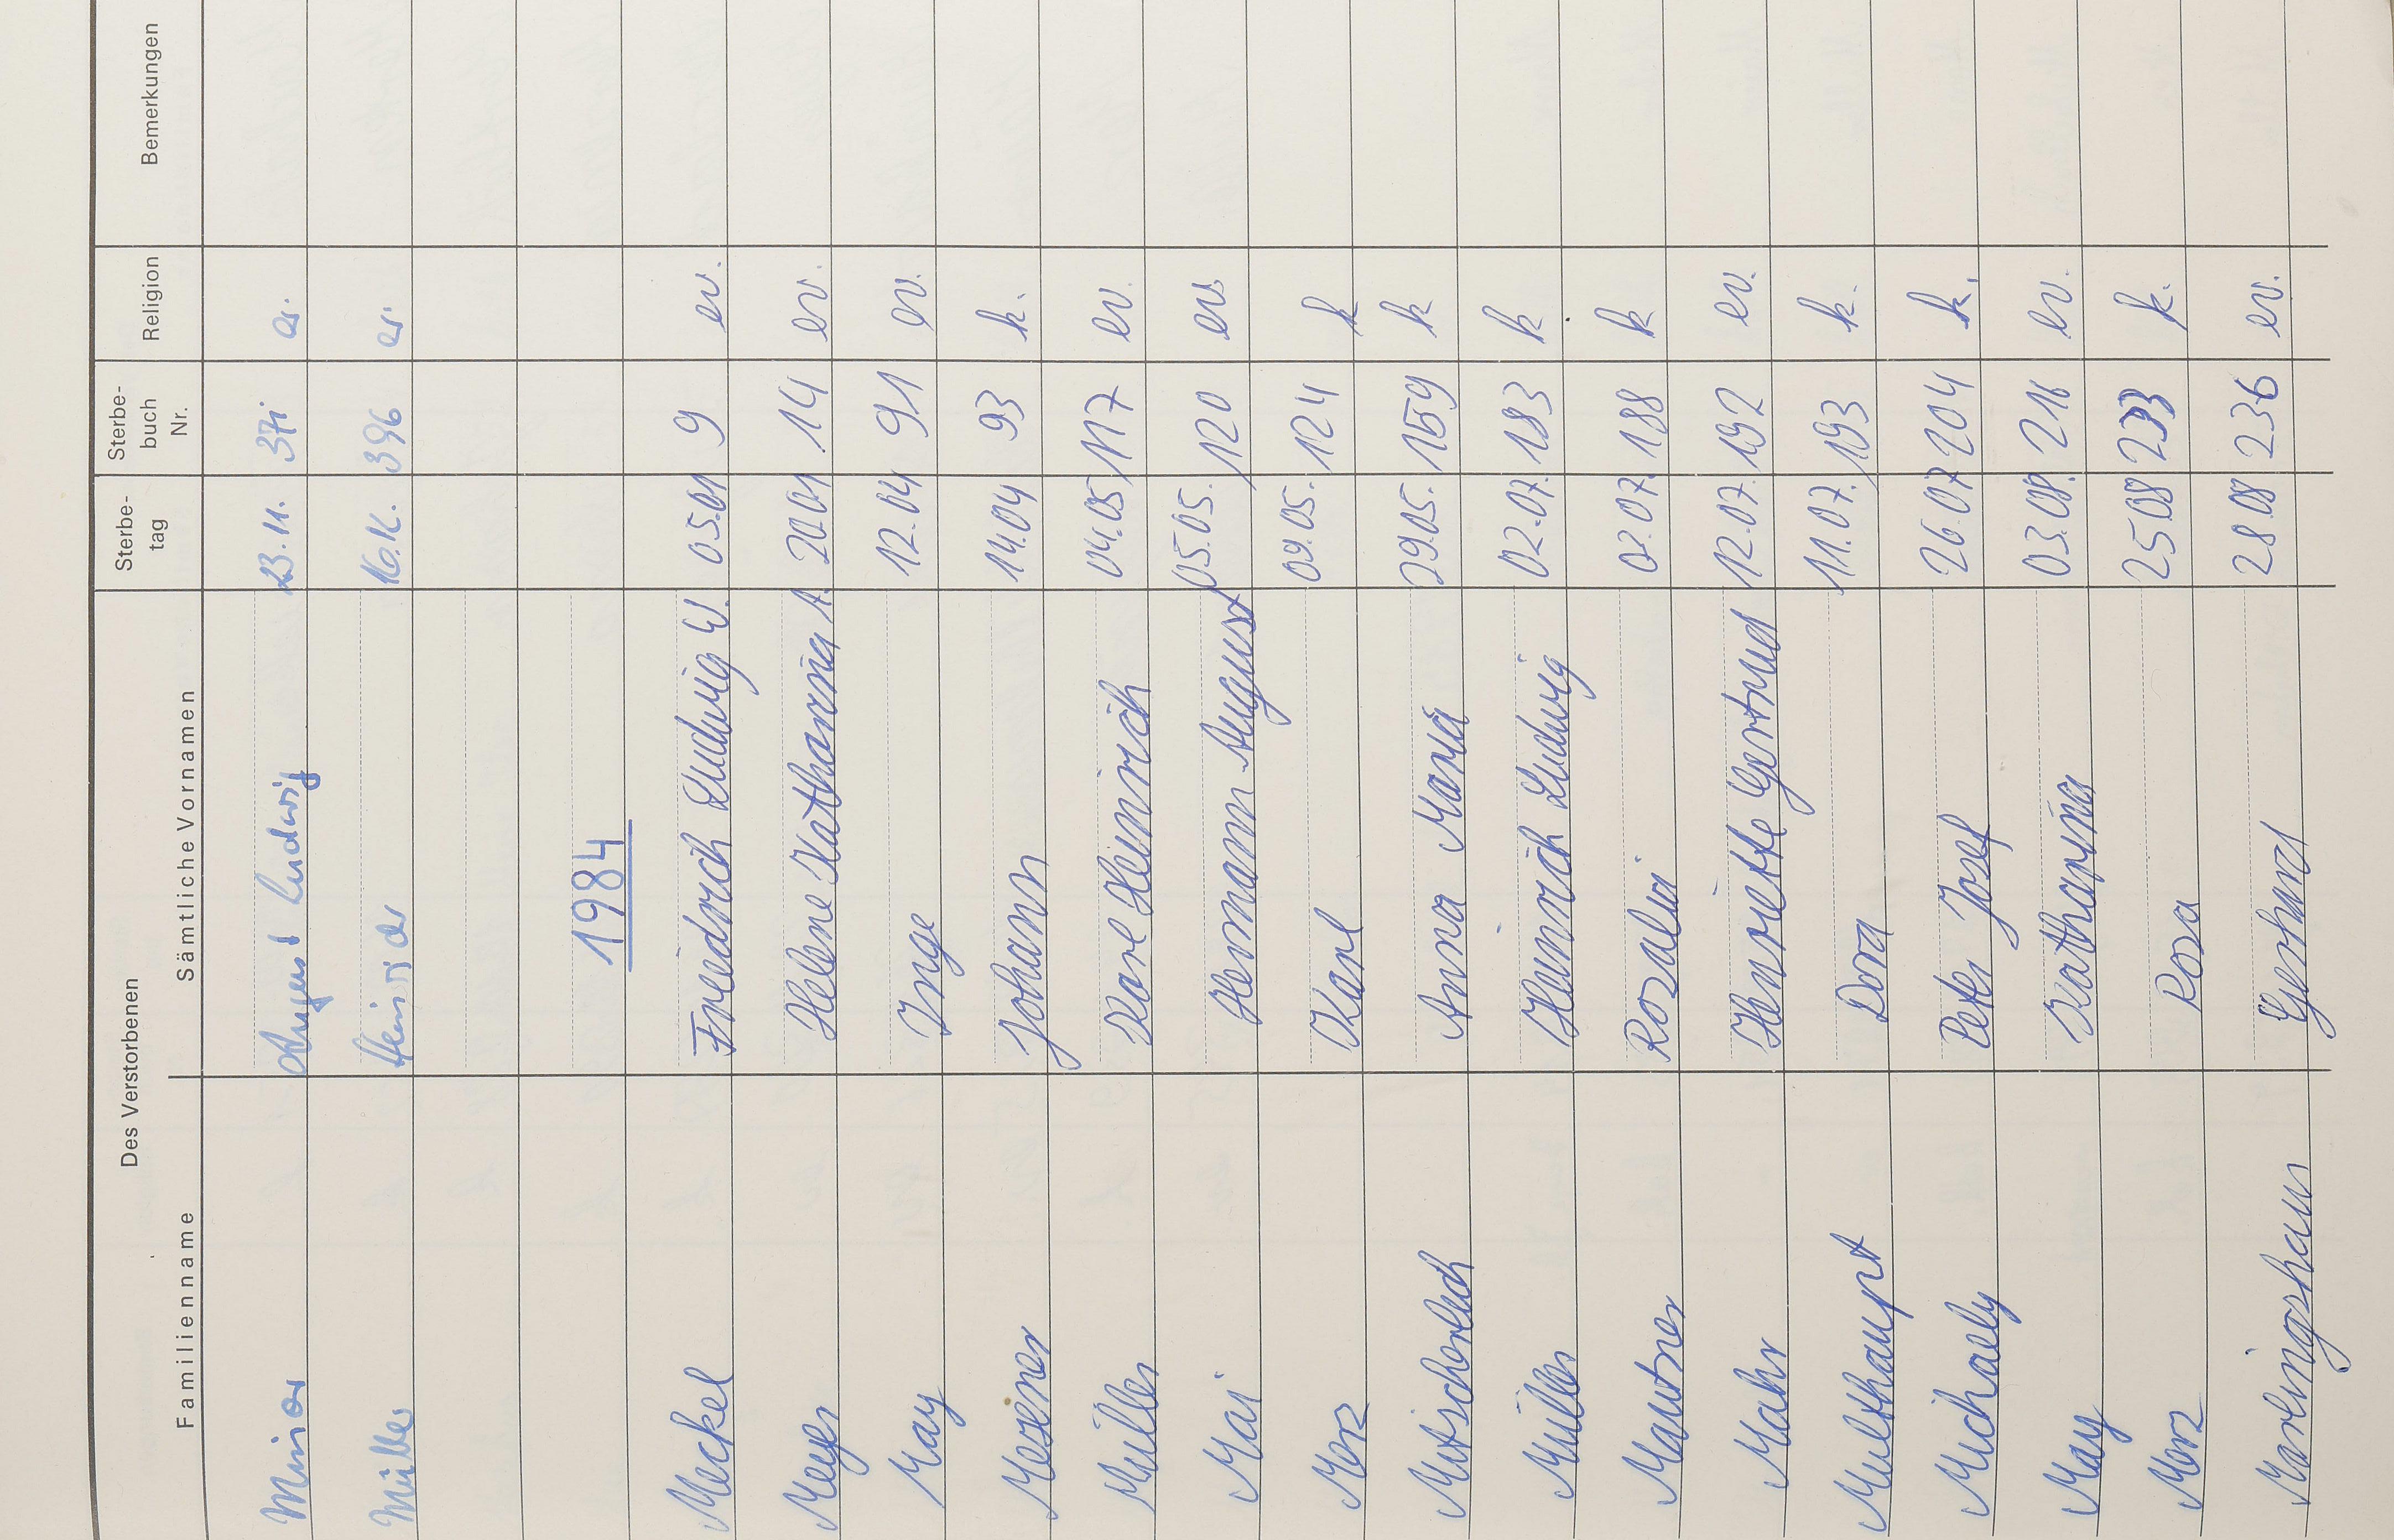 Des Verstorbenen Sterbe- Sterbe- Religion Bemerkungen
tag buch
Familienname Sämtliche Vornamen Nr.
Minor August Ludwig 23.11. 371 ev.
Müller Heinrich 396 ev.
1984
Meckel Friedrich Ludwig W. 05.01 9 ev.
Meyer Helene Katharina A. 20.01 14 ev.
May Inge 12.04 91 ev.
Mesener Johann 14.04 93 k.
Müller Karl Heinrich 04.05 117 ev.
Mai Hermann August 05.05. 120 ev.
Merz Karl 09.05. 124 k
Mutscherlich Anna Maria 29.05. 159 k
Müller Heinrich Ludwig 02.07. 183 k
Mautner Rozalia 07. 188 k
Mahr Henriette Gertrud 12.07. 192 ev.
Multhaupt Dora 11.07. 193 k.
Michaely Peter Josef 26.07 204 k.
May Katharina 03.08. 216 ev.
Merz Rosa 25.08 233 k.
Marlingshaus Gerhard 28.08 236 ev.